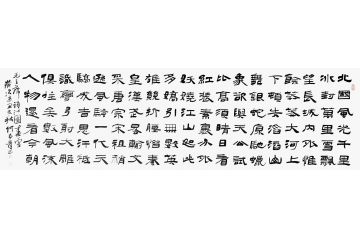 北國風光千里
冰封萬里雪飄
望長城內外惟
餘莽莽大河上
下頓失滔滔山
舞銀蛇原馳蠟
象欲與天公試
比高須晴日看
紅裝素裹分外
妖嬈江山如此
多嬌引無數英
雄競折腰惜秦
皇漢武略輸文
采唐宗宋祖稍
遜風騷一代天
驕成吉思汗只
識彎弓射大雕
俱往矣數風流
人物還看今朝
毛主席詩沁園春雪